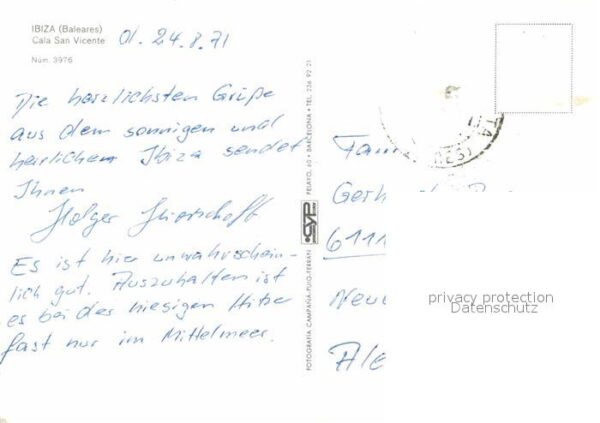 IBIZA (Baleares)
Cala San Vicente
Núm. 3976
d. 24.8.71
Die herzlichsten Grüße
aus dem sonnigen und
herrlichen Ibiza sendet
Ihnen
Holger
Es ist hier unwahrschein-
lich gut. Auszuhalten ist
es bei des hiesigen Hitze
fast nur im Mittelmeer.
FOTOGRAFIA CAMPAÑA-PUIG-FERRAN
CYP
PELAYO, 60 • BARCELONA • TEL. 236 92 21
Fam
Ger
6111
Neu
Ale
privacy protection
Datenschutz